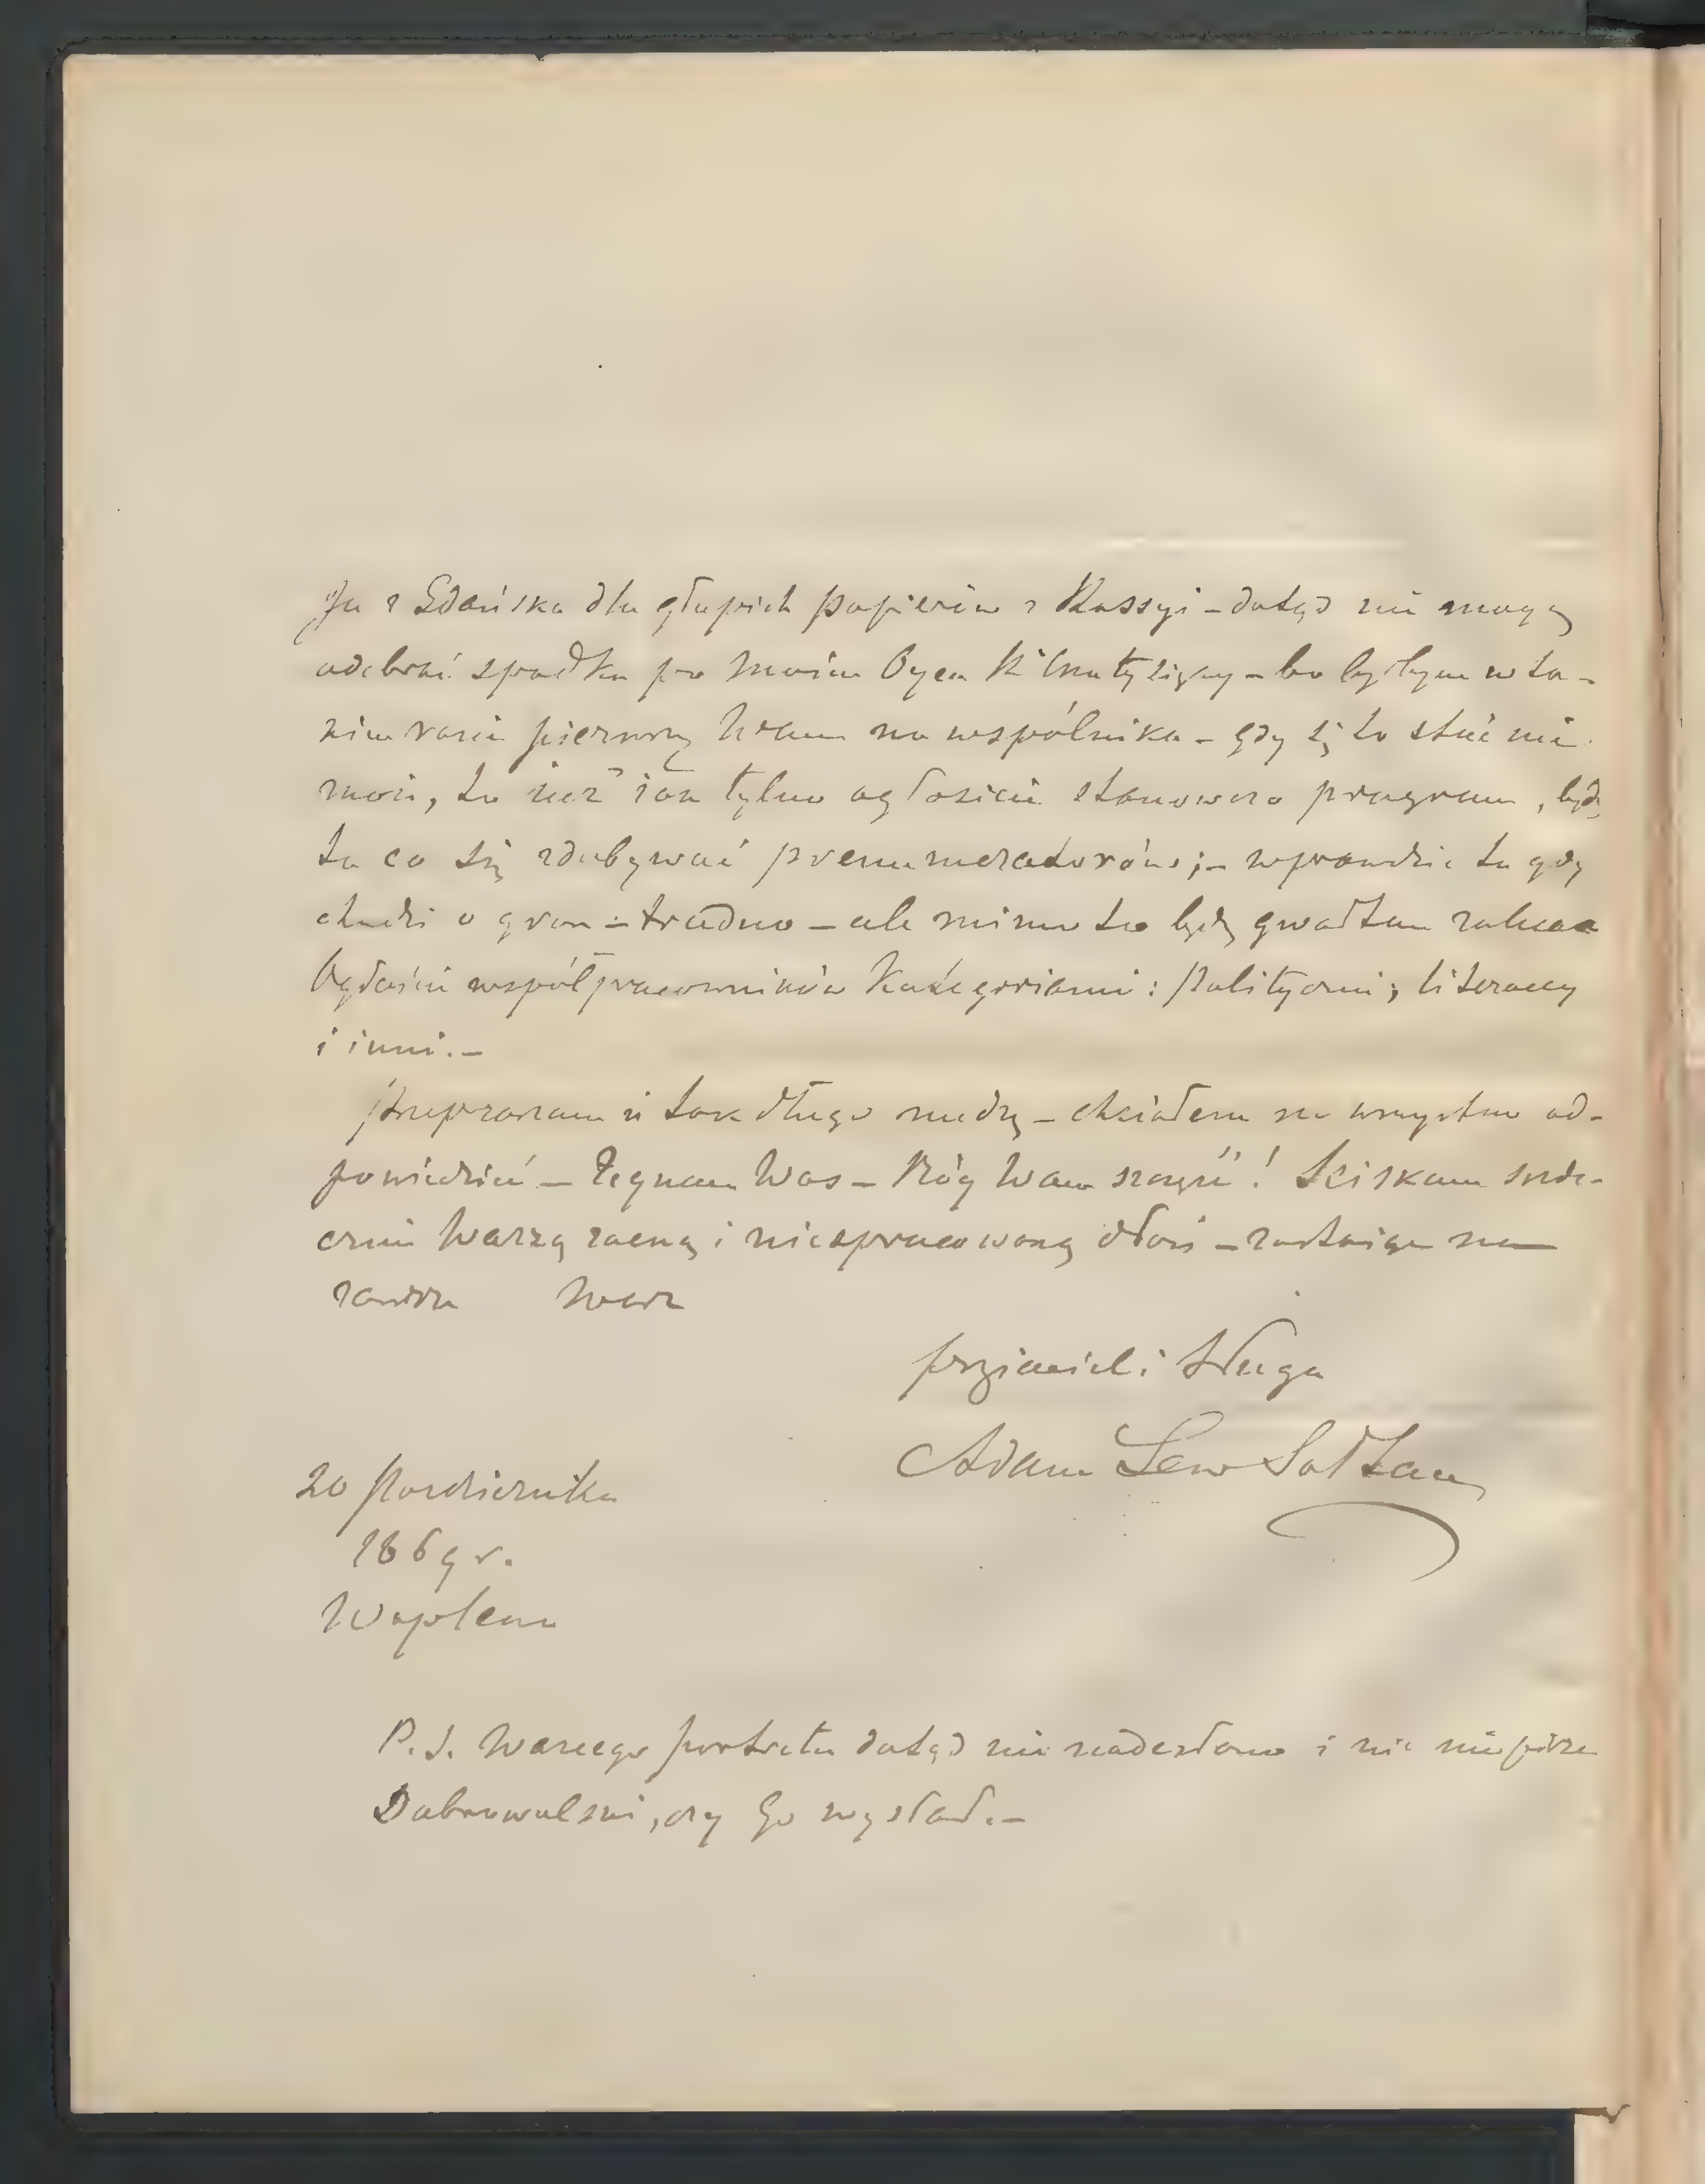 Ja z Gdańska dla głupich papierów z Rossyi – dotąd nie mogę
odebrać spadku po moim Ojcu – bo byłbym w ta-
kim razie pierwszy Wam na wspólnika – gdy się to stać nie
może, to już jak tylko ogłosicie stanowczo program, będę
tu co się zdobywać prenumeratorów; – wprawdzie tu gdy
chodzi o grosz – trudno – ale mimo to będę gwałtem
Ogłoście współpracowników kategoriami: Polityczni; literaccy
i inni. –
Przepraszam iż tak długo nudzę – chciałem na wszystko od-
powiedzieć – Żegnam Was – Bóg Wam szczęść! Ściskam serde-
cznie Waszą zacną i niespracowaną dłoń – zostając na
zawsze Wasz
przyjaciel i sługa
Adam Lew Sołtan
20 Października
1869 r.
Waplewo
P.S. Waszego portretu dotąd nie nadesłano i nic nie pisze
Dobrowolski, czy Go wysłał. –